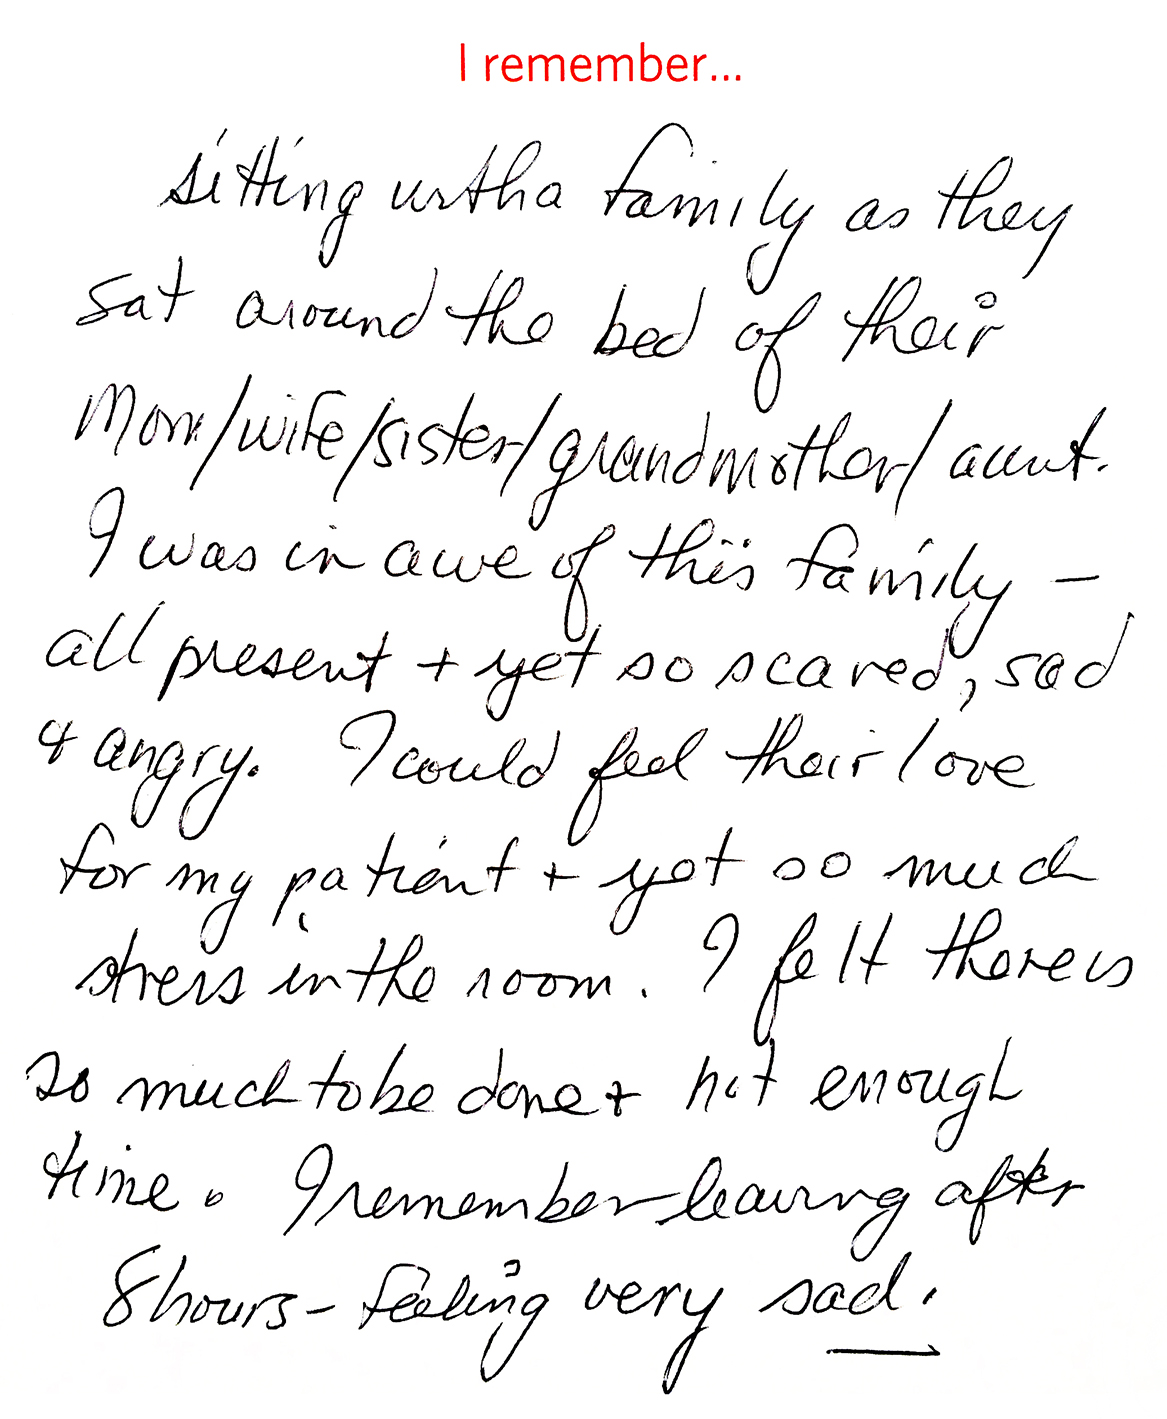 I remember...
sitting with a family as they
sat around the bed of their
Mom/wife/sister/grandmother/aunt.
I was in awe of this family –
all present + yet so scared, sad
& angry. I could feel their love
for my patient + yet so much
stress in the room. I felt there is
so much to be done + not enough
time. I remember leaving after
8 hours – feeling very sad.